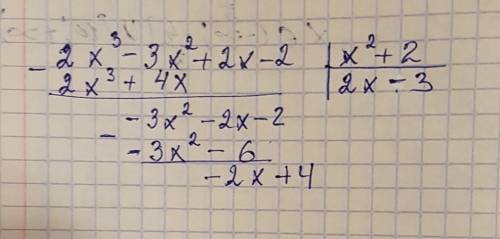 - 2x³ - 3x² + 2x - 2 | x² + 2
2x³ + 4x | 2x - 3
- - 3x² - 2x - 2
- 3x² - 6
- 2x + 4